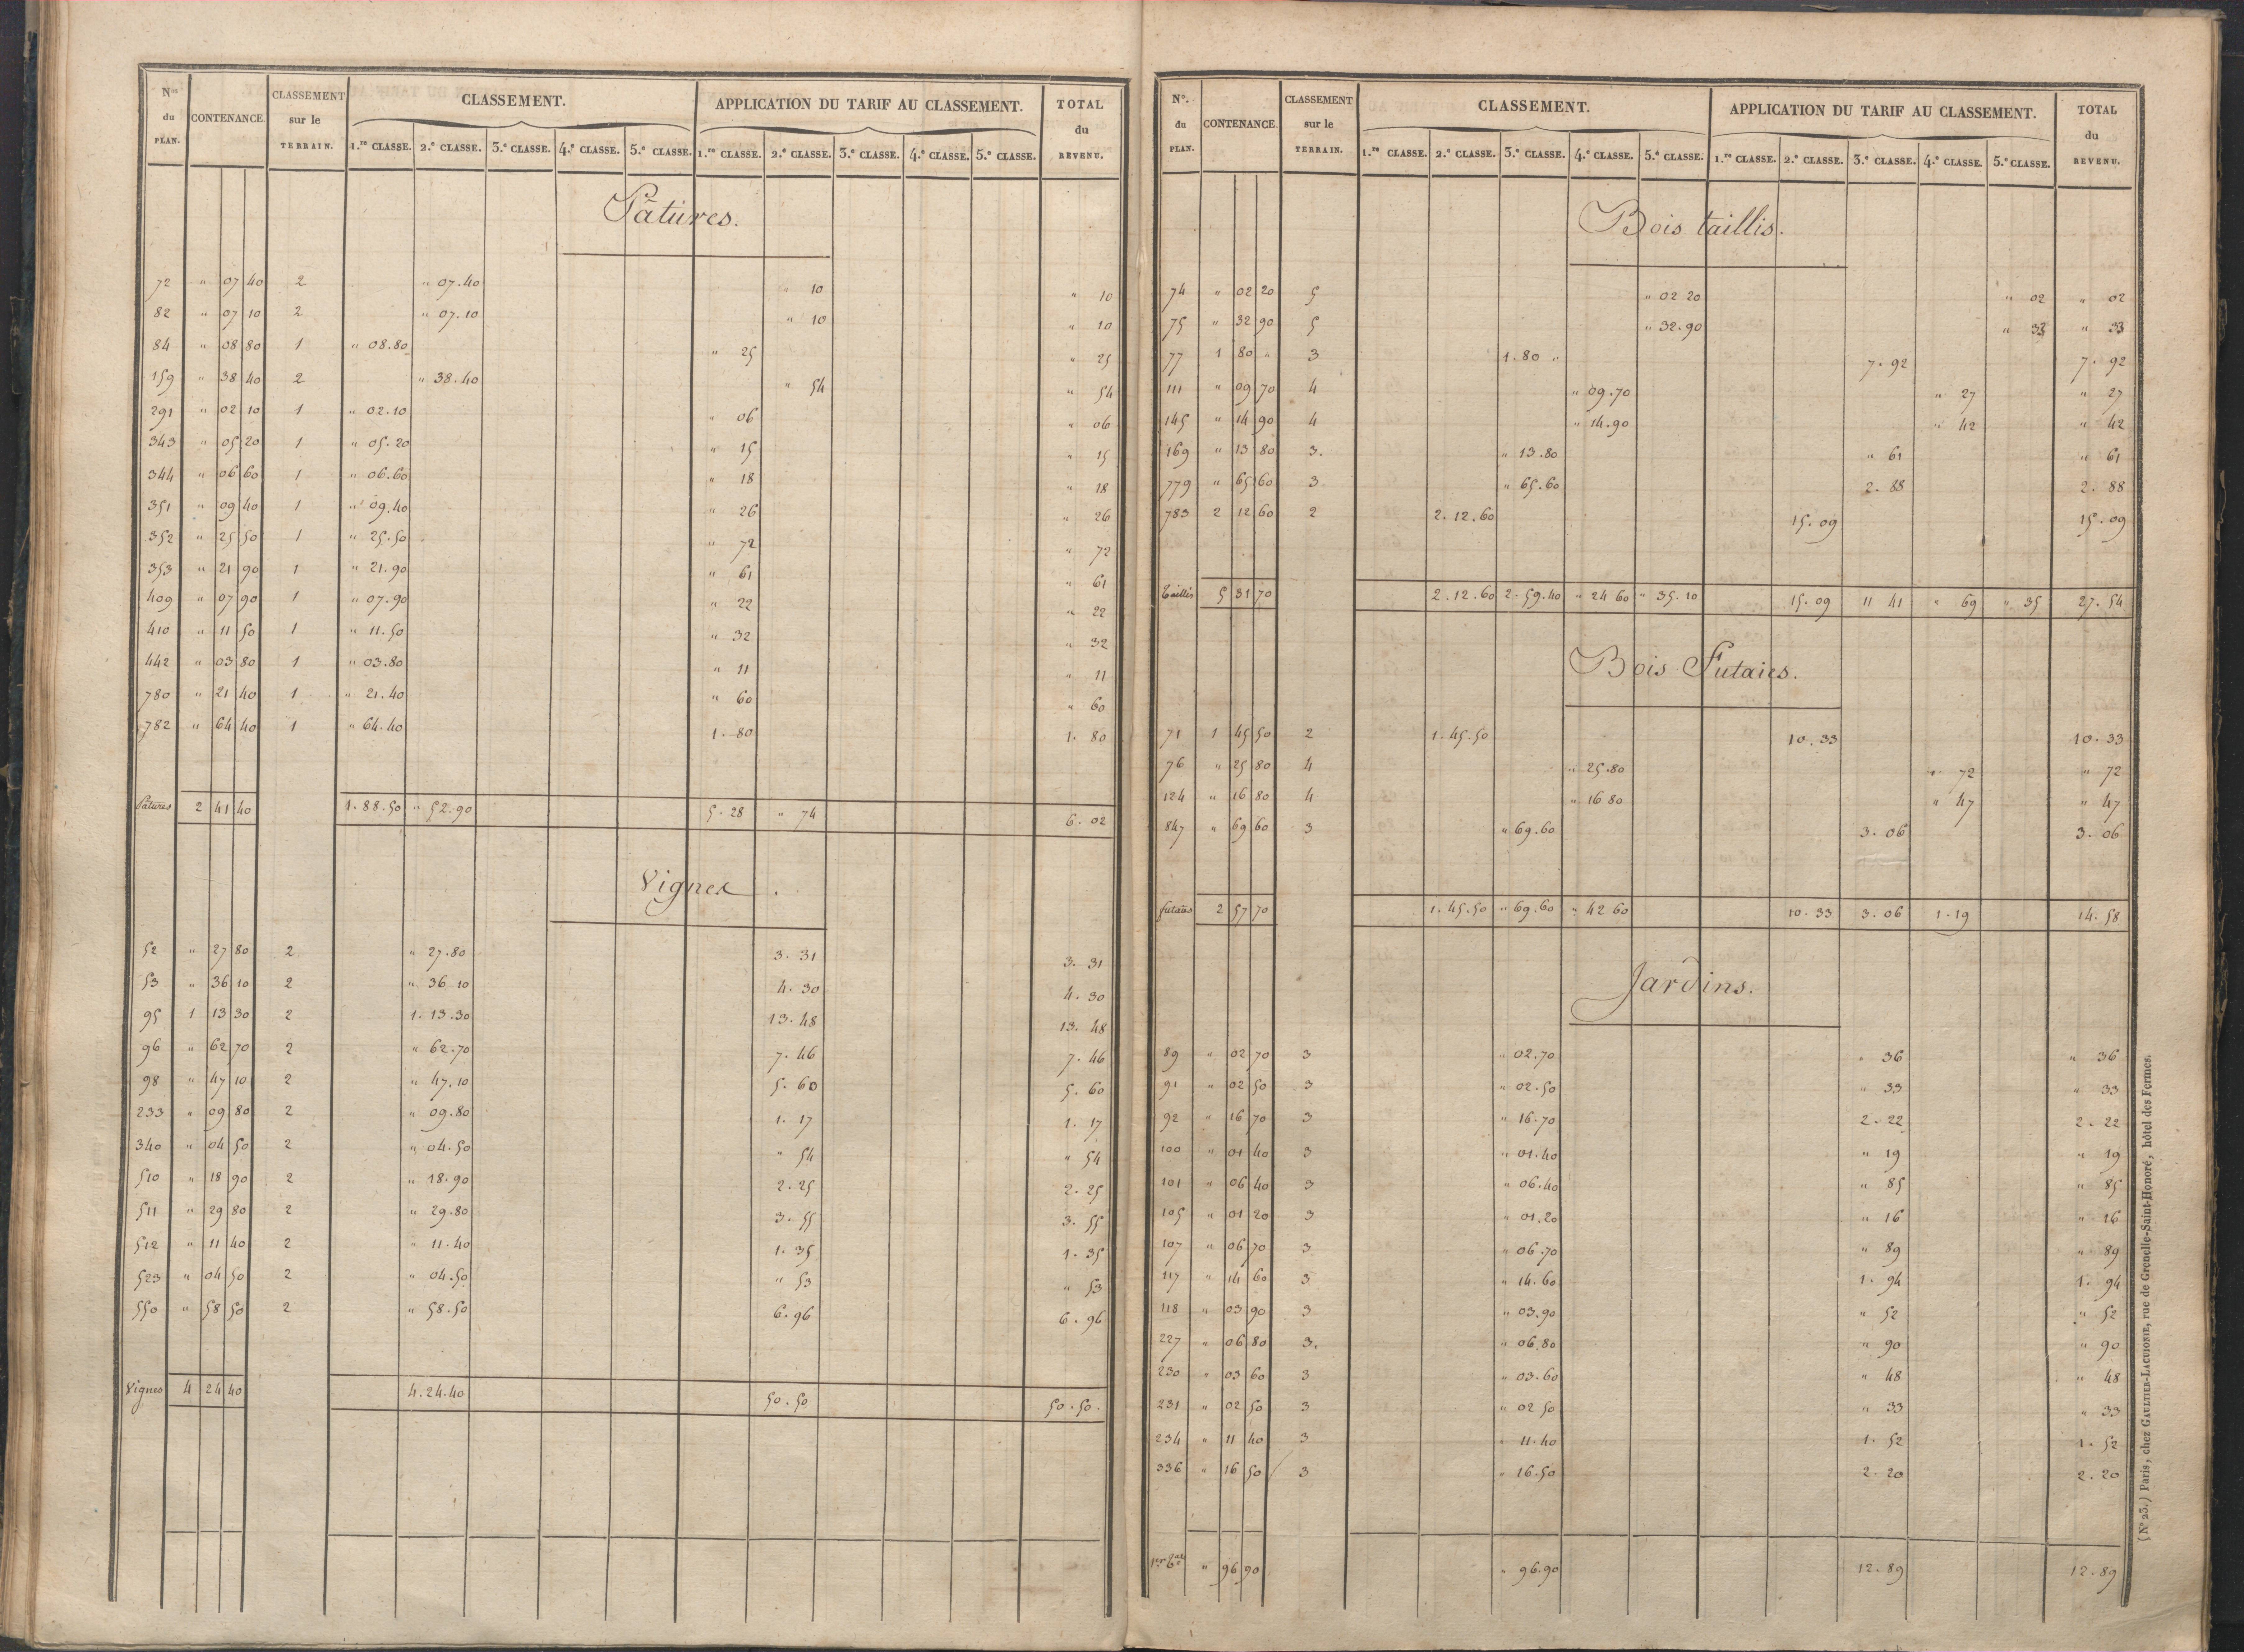 Nos du PLAN. CONTENANCE. CLASSEMENT sur le TERRAIN. CLASSEMENT. APPLICATION DU TARIF AU CLASSEMENT. TOTAL du REVENU.
1.re CLASSE. 2.e CLASSE. 3.e CLASSE. 4.e CLASSE. 5.e CLASSE. 1.re CLASSE. 2.e CLASSE. 3.e CLASSE. 4.e CLASSE. 5.e CLASSE.
Pâtures.
72 " 07 40 2 " 07.40 " 10 " 10
82 " 07 10 2 " 07.10 " 10 " 10
84 " 08 80 1 " 08.80 " 25 " 25
159 " 38 40 2 " 38.40 " 54 " 54
291 " 02 10 1 " 02.10 " 06 " 06
343 " 05 20 1 " 05.20 " 15 " 15
344 " 06 60 1 " 06.60 " 18 " 18
351 " 09 40 1 " 09.40 " 26 " 26
352 " 25 50 1 " 25.50 " 72 " 72
353 " 21 90 1 " 21.90 " 61 " 61
409 " 07 90 1 " 07.90 " 22 " 22
410 " 11 50 1 " 11.50 " 32 " 32
442 " 03 80 1 " 03.80 " 11 " 11
780 " 21 40 1 " 21.40 " 60 " 60
782 " 64 40 1 " 64.40 1. 80 1. 80
Pâtures 2 41 40 1.88.50 " 52.90 5.28 " 74 6.02
Vignes.
52 " 27 80 2 " 27.80 3.31 3.31
53 " 36 10 2 " 36 10 4.30 4.30
95 1 13 30 2 1.13.30 13.48 13.48
96 " 62 70 2 " 62.70 7.46 7.46
98 " 47 10 2 " 47.10 5.60 5.60
233 " 09 80 2 " 09.80 1.17 1.17
340 " 04 50 2 " 04.50 " 54 " 54
510 " 18 90 2 " 18.90 2.25 2.25
511 " 29 80 2 " 29.80 3.55 3.55
512 " 11 40 2 " 11.40 1.35 1.35
523 " 04 50 2 " 04.50 " 53 " 53
550 " 58 50 2 " 58.50 6.96 6.96
Vignes 4 24 40 4.24.40 50.50 50.50.
No. du PLAN. CONTENANCE. CLASSEMENT sur le TERRAIN. CLASSEMENT. APPLICATION DU TARIF AU CLASSEMENT. TOTAL du REVENU.
1.re CLASSE. 2.e CLASSE. 3.e CLASSE. 4.e CLASSE. 5.e CLASSE. 1.re CLASSE. 2.e CLASSE. 3.e CLASSE. 4.e CLASSE. 5.e CLASSE.
Bois taillis.
74 " 02 20 5 " 02 20 " 02 " 02
75 " 32 90 5 " 32.90 " 33 " 33
77 1 80 " 3 1.80 " 7.92 7.92
111 " 09 70 4 " 09.70 " 27 " 27
145 " 14 90 4 " 14.90 " 42 " 42
169 " 13 80 3. " 13.80 " 61 " 61
779 " 65 60 3 " 65.60 2.88 2.88
783 2 12 60 2 2.12.60 15.09 15.09
Taillis 5 31 70 2.12.60 2.59.40 " 24 60 " 35.10 15.09 11 41 " 69 " 35 27.54
Bois Futaies.
71 1 45 50 2 1.45.50 10.33 10.33
76 " 25 80 4 " 25.80 " 72 " 72
124 " 16 80 4 " 16 80 " 47 " 47
847 " 69 60 3 " 69.60 3.06 3.06
futaies 2 57 70 1.45.50 " 69.60 " 42 60 10.33 3.06 1.19 14.58
Jardins.
89 " 02 70 3 " 02.70 " 36 " 36
91 " 02 50 3 " 02.50 " 33 " 33
92 " 16 70 3 " 16.70 2.22 2.22
100 " 01 40 3 " 01.40 " 19 " 19
101 " 06 40 3 " 06.40 " 85 " 85
105 " 01 20 3 " 01.20 " 16 " 16
107 " 06 70 3 " 06.70 " 89 " 89
117 " 14 60 3 " 14.60 1.94 1.94
118 " 03 90 3 " 03.90 " 52 " 52
227 " 06 80 3. " 06.80 " 90 " 90
230 " 03 60 3 " 03.60 " 48 " 48
231 " 02 50 3 " 02 50 " 33 " 33
234 " 11 40 3 " 11.40 1.52 1.52
336 " 16 50 3 " 16.50 2.20 2.20
" 96 90 " 96.90 12.89 12.89
(No 23.) Paris, chez GAULTIER-LAGUIONIE, rue de Grenelle-Saint-Honoré, hôtel des Fermes.